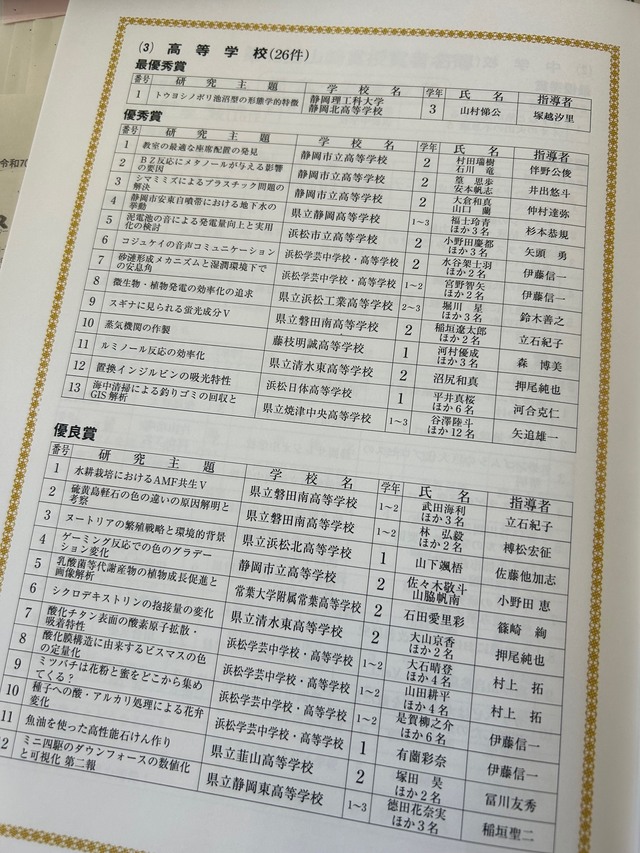 令和7
(3) 高等学校(26件)
最優秀賞
番号 研究主題 学校名 学年 氏名 指導者
1 トウヨシノボリ池沼型の形態学的特徴 静岡理工科大学静岡北高等学校 3 山村悌公 塚越汐里
優秀賞
番号 研究主題 学校名 学年 氏名 指導者
1 教室の最適な座席配置の発見 静岡市立高等学校 2 村田瑞樹 石川 竜 伴野公俊
2 BZ反応にメタノールが与える影響の要因 静岡市立高等学校 2 筮 思歩 安本帆志 井出悠斗
3 シマミミズによるプラスチック問題の解決 静岡市立高等学校 2 大倉和真 山口 蘭 仲村達弥
4 静岡市安東自噴帯における地下水の挙動 県立静岡高等学校 1~3 福士玲青 ほか3名 杉本恭規
5 泥電池の音による発電量向上と実用化の検討 浜松市立高等学校 2 小野田慶都 ほか3名 矢頭 勇
6 コジュケイの音声コミュニケーション 浜松学芸中学校・高等学校 2 水谷架士羽 ほか2名 伊藤信一
7 砂漣形成メカニズムと湿潤環境下での安息角 浜松学芸中学校・高等学校 1~2 宮野智矢 ほか2名 伊藤信一
8 微生物・植物発電の効率化の追求 県立浜松工業高等学校 2~3 堀川 星 ほか3名 鈴木善之
9 スギナに見られる蛍光成分Ⅴ 県立磐田南高等学校 2 稲垣遼太郎 ほか2名 立石紀子
10 蒸気機関の作製 藤枝明誠高等学校 1 河村優成 ほか3名 森 博美
11 ルミノール反応の効率化 県立清水東高等学校 2 沼尻和真 押尾純也
12 置換インジルビンの吸光特性 浜松日体高等学校 1 平井真桜 ほか6名 河合克仁
13 海中清掃による釣りゴミの回収とGIS解析 県立焼津中央高等学校 1~3 谷澤陸斗 ほか12名 矢追雄一
優良賞
番号 研究主題 学校名 学年 氏名 指導者
1 水耕栽培におけるAMF共生Ⅴ 県立磐田南高等学校 1~2 武田海利 ほか3名 立石紀子
2 硫黄島軽石の色の違いの原因解明と考察 県立磐田南高等学校 1~2 林 弘毅 ほか2名 榑松宏征
3 ヌートリアの繁殖戦略と環境的背景 県立浜松北高等学校 1 山下颯悟 佐藤他加志
4 ゲーミング反応での色のグラデーション変化 静岡市立高等学校 2 佐々木敬斗 山脇帆南 小野田 恵
5 乳酸菌等代謝産物の植物成長促進と画像解析 常葉大学附属常葉高等学校 2 石田愛里彩 篠崎 絢
6 シクロデキストリンの抱接量の変化 県立清水東高等学校 2 大山京香 ほか2名 押尾純也
7 酸化チタン表面の酸素原子拡散・吸着特性 浜松学芸中学校・高等学校 1~2 大石晴登 ほか4名 村上 拓
8 酸化膜構造に由来するビスマスの色の定量化 浜松学芸中学校・高等学校 1~2 山田耕平 ほか4名 村上 拓
9 ミツバチは花粉と蜜をどこから集めてくる? 浜松学芸中学校・高等学校 1~2 是賀柳之介 ほか6名 伊藤信一
10 種子への酸・アルカリ処理による花弁変化 浜松学芸中学校・高等学校 1 有薗彩奈 伊藤信一
11 魚油を使った高性能石けん作り 県立韮山高等学校 2 塚田 昊 ほか2名 冨川友秀
12 ミニ四駆のダウンフォースの数値化と可視化 第二報 県立静岡東高等学校 1~3 徳田花奈実 ほか3名 稲垣聖二